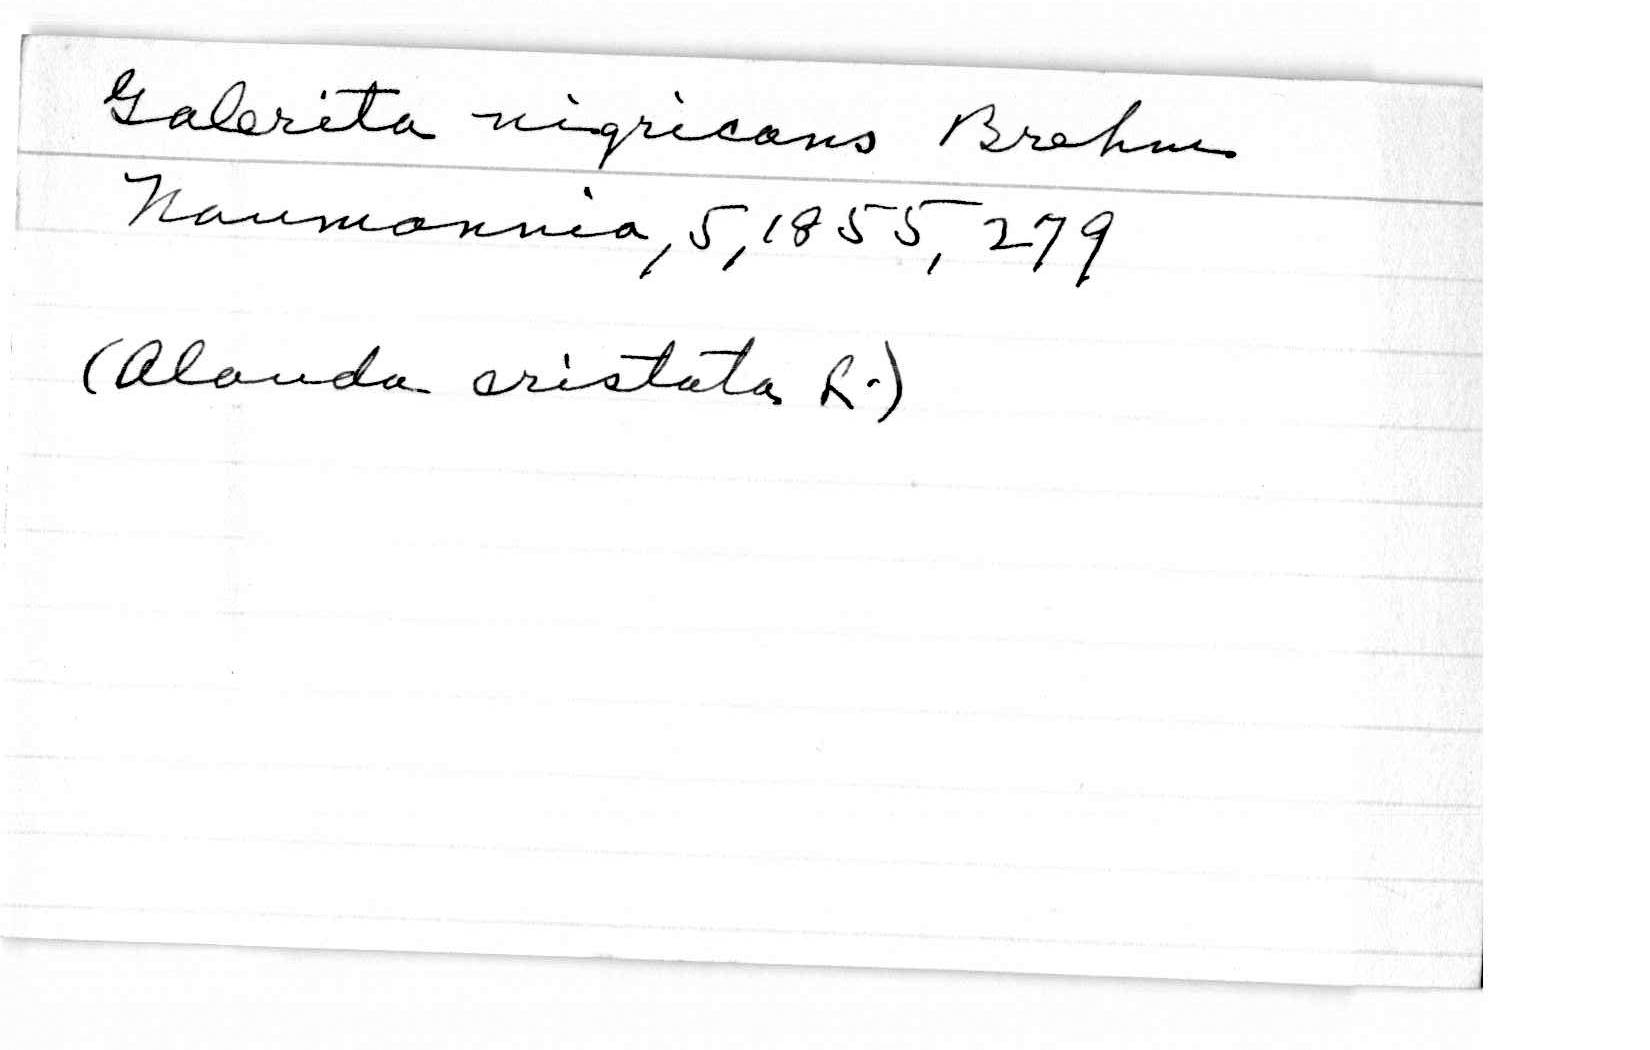 Galerita nigricans Brehm
Naumannia, 5, 1855, 279
(Alauda cristata L.)